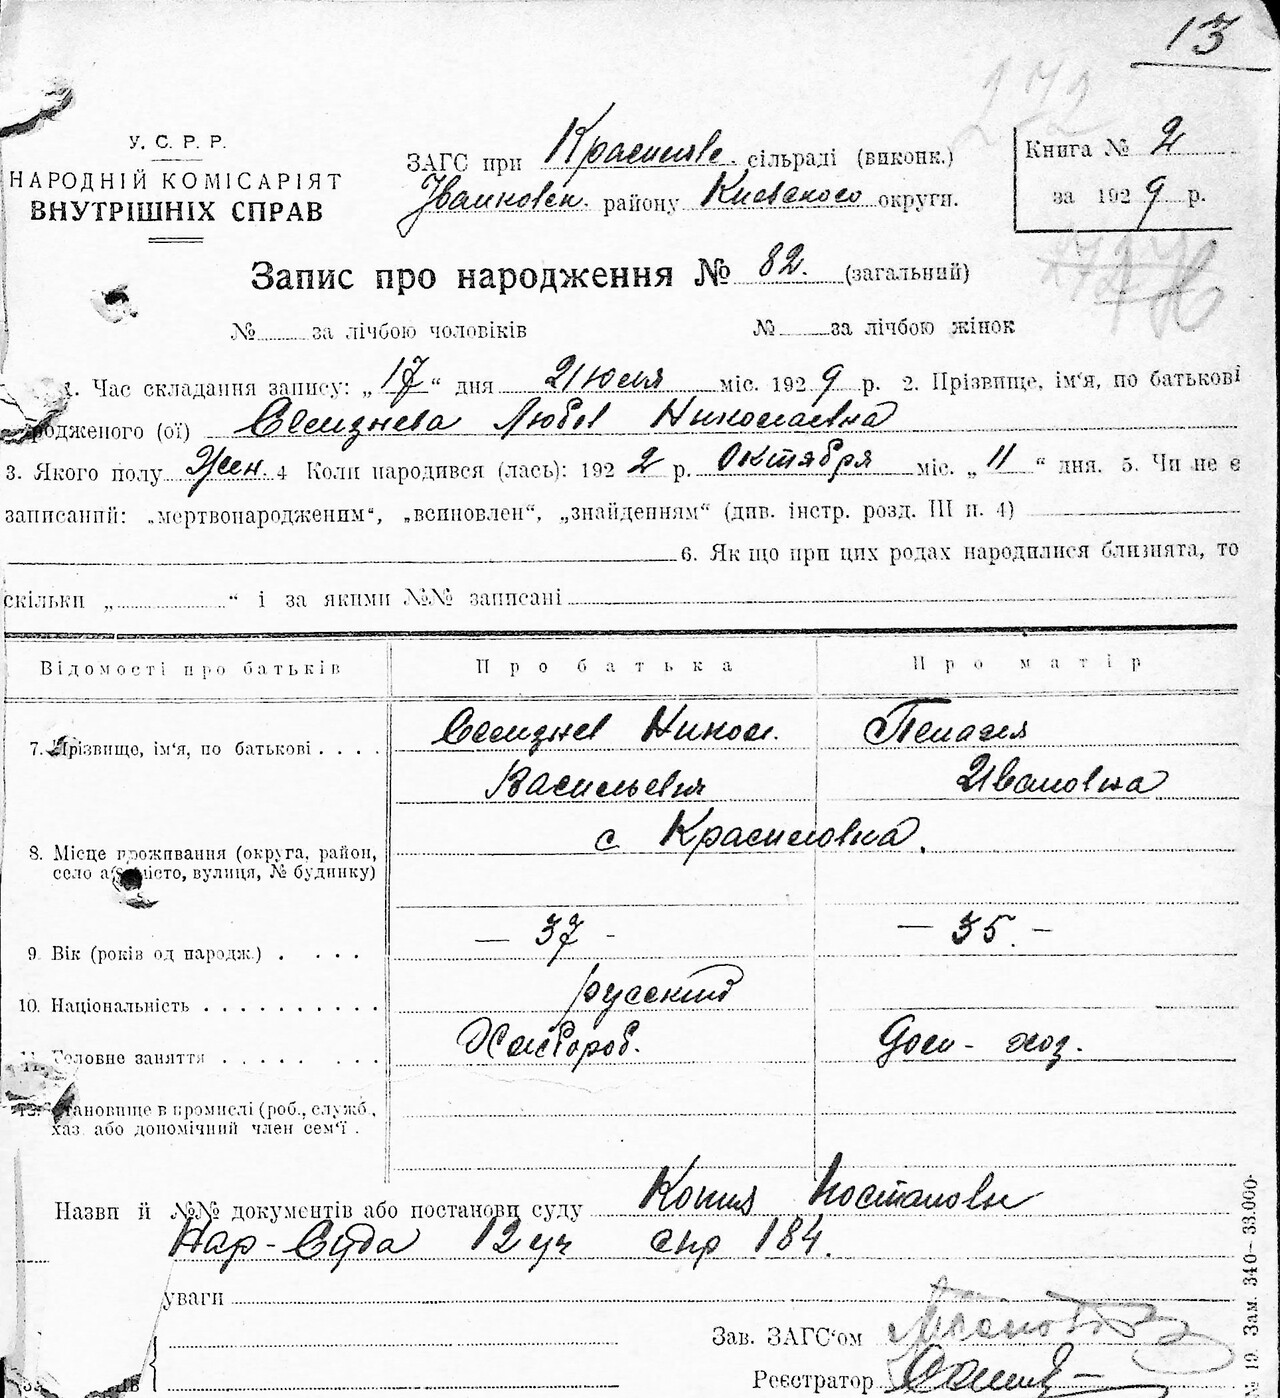 13
272
У. С. Р. Р.
НАРОДНІЙ КОМІСАРІЯТ
ВНУТРІШНІХ СПРАВ
ЗАГС при Красилів. сільраді (виконк.)
Іванковск. району Киевского округи.
Книга № 2
за 1929 р.
Запис про народження № 82. (загальний)
№ за лічбою чоловіків № за лічбою жінок
1. Час складання запису: „17“ дня 21 юля міс. 1929 р. 2. Прізвище, ім‘я, по батькові
родженого (ої) Селизнева Любов Николаевна
3. Якого полу Жен. 4 Коли народився (лась): 1922 р. Октября міс. „11“ дня. 5. Чи не є
записаний: „мертвонародженим“, „всиновлен“, „знайденням“ (див. інстр. розд. III п. 4)
6. Як що при цих родах народилися близнята, то
скільки „ “ і за якими №№ записані
Відомості про батьків Про батька Про матір
7. Прізвище, ім‘я, по батькові . . . . Селизнев Никол. Пелагея
Васильевич Ивановна
8. Місце проживання (округа, район, село або місто, вулиця, № будинку) с Красиловка.
9. Вік (років од народж.) . . . . — 37 - — 35. -
10. Національність . . . . . . . . . . русский
11. Головне заняття . . . . . . . . Хлібороб. Дом- хоз.
12. Становище в промислі (роб., служб.,
хаз або допомічний член сем‘ї .
Назви й №№ документів або постанови суду Копия Постановы
Нар-Суда 12 уч спр 184.
уваги
Зав. ЗАГС‘ом
Реєстратор
№ 19. Зам. 340—33.000.